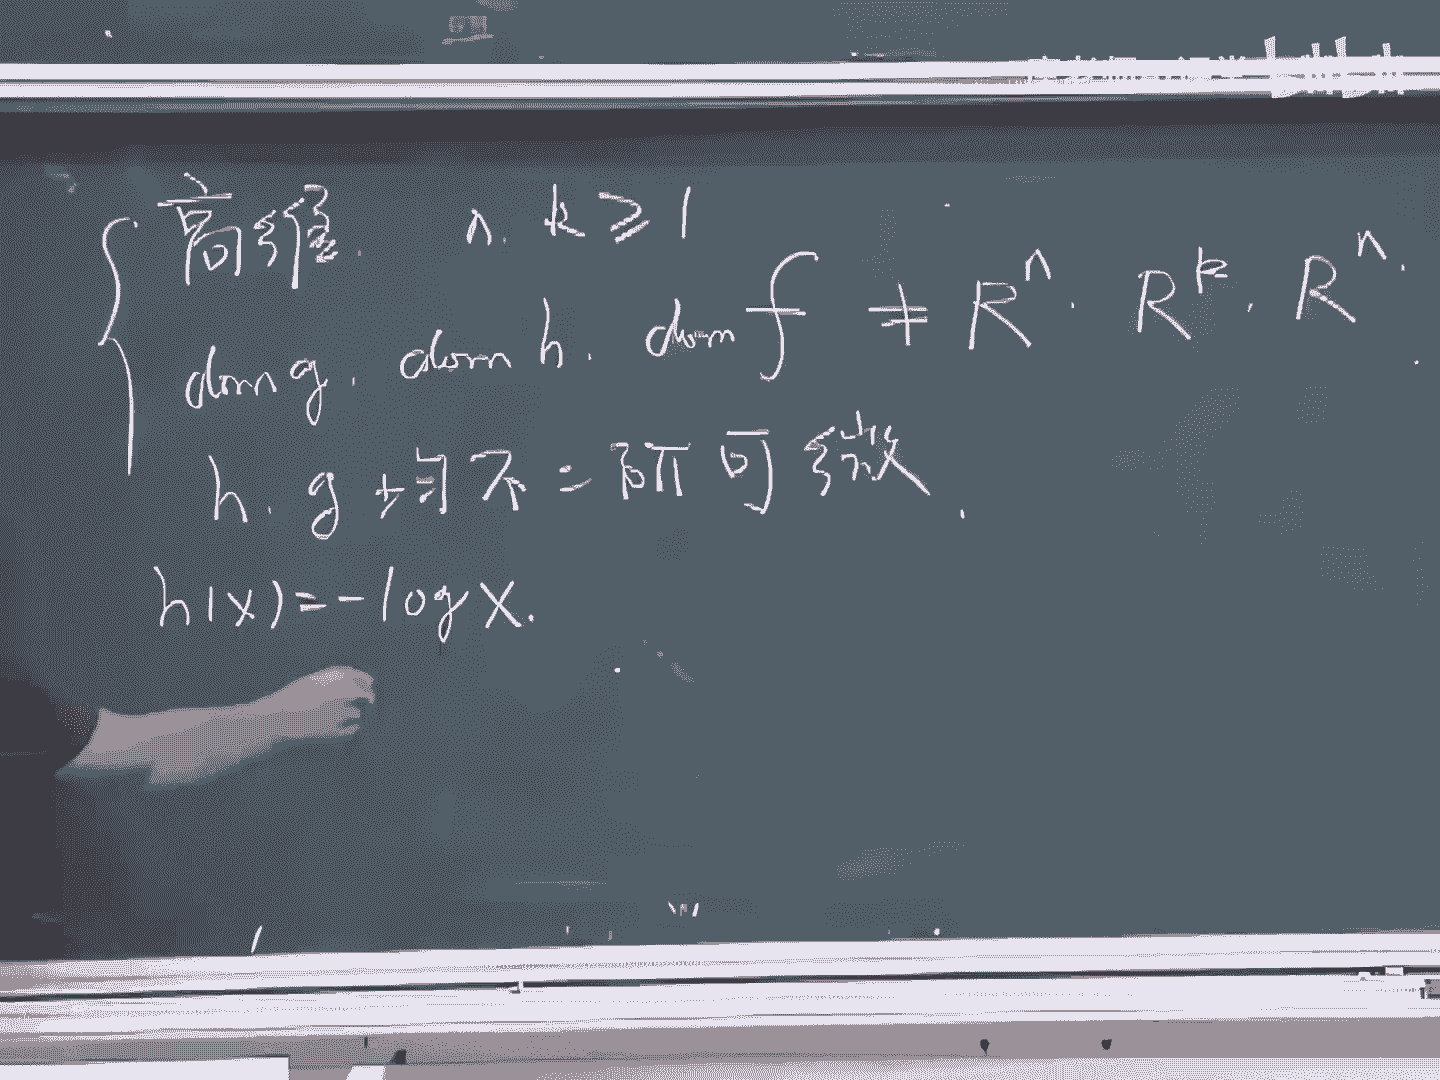 高维. n. k ≥ 1
dom g. dom h. dom f ≠ R^n. R^k. R^n.
h. g 均不二阶可微.
h(x) = -log x.